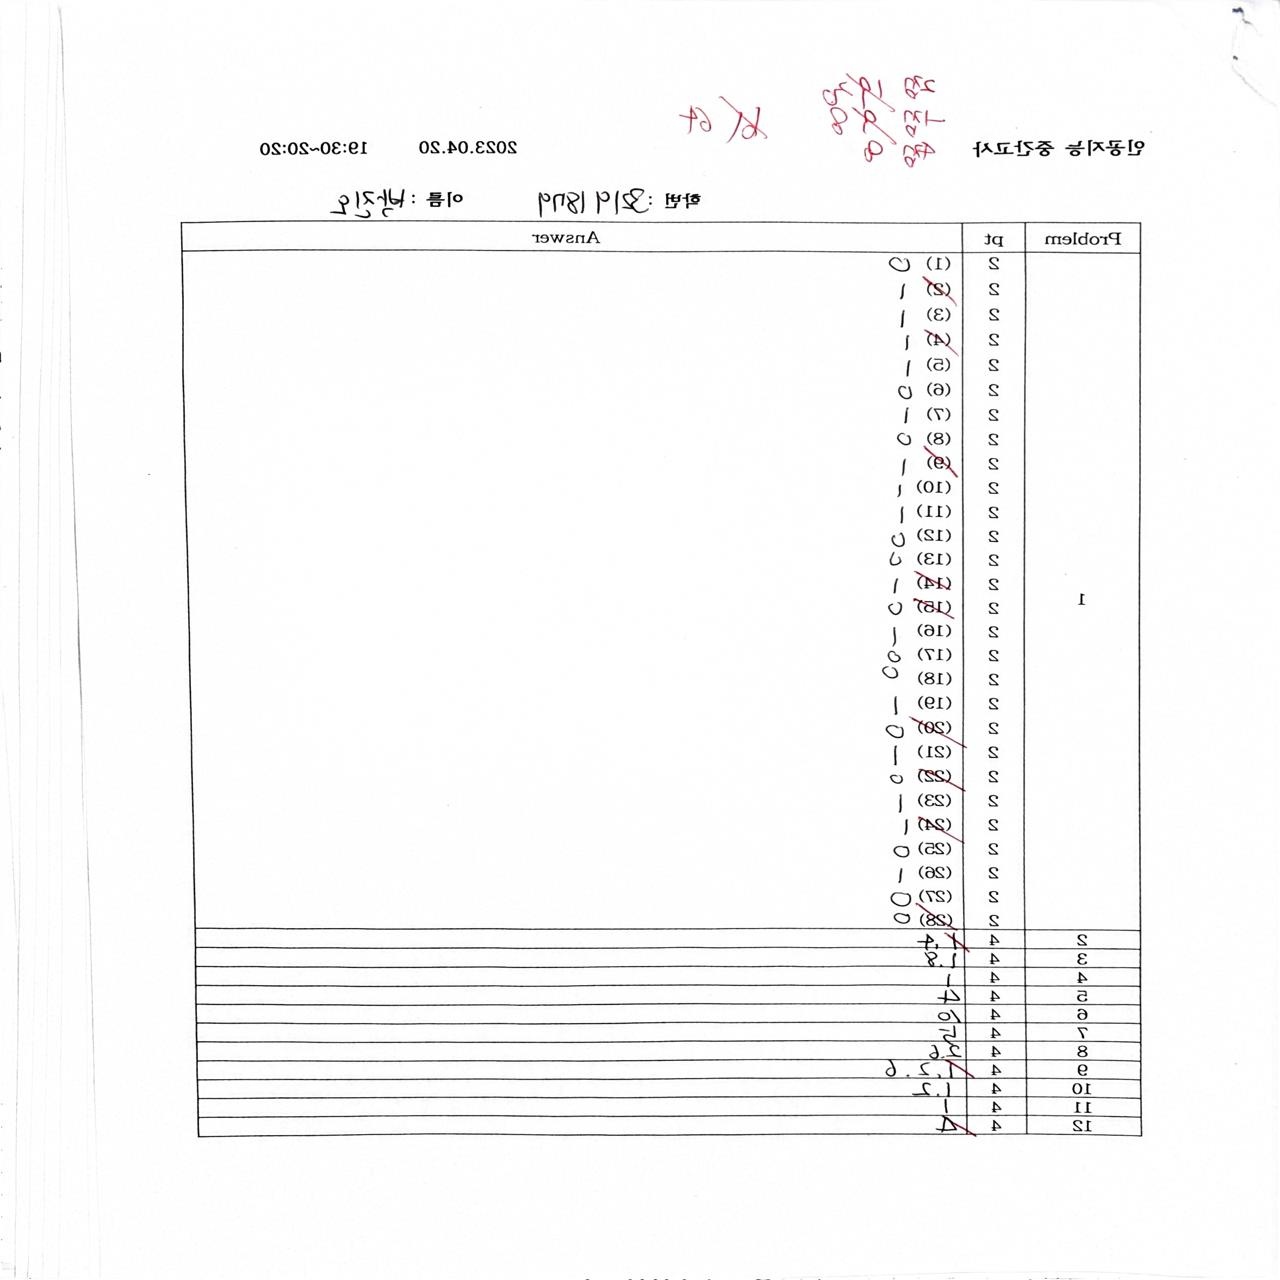 인공지능 중간고사 2023.04.20 19:30~20:20
학번 : 이름 :
Problem pt Answer
1
2 (1) 0
2 (2) 1
2 (3) 1
2 (4) 1
2 (5) 1
2 (6) 0
2 (7) 1
2 (8) 0
2 (9) 1
2 (10) 1
2 (11) 1
2 (12) 0
2 (13) 0
2 (14) 1
2 (15) 0
2 (16) 1
2 (17) 0
2 (18) 0
2 (19) 1
2 (20) 0
2 (21) 1
2 (22) 0
2 (23) 1
2 (24) 1
2 (25) 0
2 (26) 1
2 (27) 0
2 (28) 0
2 4
3 4
4 4
5 4 4
6 4
7 4
8 4
9 4
10 4
11 4
12 4 4